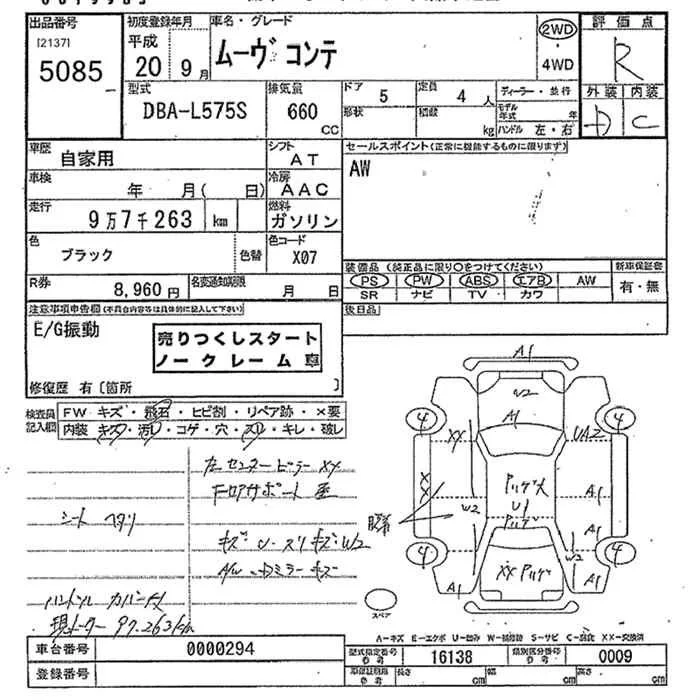 出品番号
[2137]
5085
初度登録年月
平成
20 9月
車名・グレード
ムーヴ コンテ
2WD
4WD
評価点
R
外装 内装
D C
型式
DBA-L575S
排気量
660
CC
ドア 5
形状
定員 4 人
積数
kg
ディーラー・並行
モデル年式 年
ハンドル 左・右
車歴
自家用
シフト
AT
セールスポイント(正常に機能するものに限ります)
AW
車検
年 月( 日)
冷房
AAC
走行
9万7千263 km
燃料
ガソリン
色
ブラック
色替
色コード
X07
装備品 (純正品に限り○をつけてください)
新車保証書
PS PW ABS エアB AW
有・無
SR ナビ TV カワ
R券
8,960円
名変通知期限
月 日
後日品
注意事項申告欄(不具合内容等は具体的に記入して下さい)
E/G振動
売りつくしスタート
ノークレーム 車
修復歴 有〔箇所 〕
検査員
記入欄
FW キズ・飛石・ヒビ割・リペア跡・×要
内装 キズ・汚レ・コゲ・穴・スレ・キレ・破レ
左センターピラーXX
シート ヘタリ
キズ・U・スリキズ・W2
現メーター 97.263km
A1
W2
A1
4
4
XX
UA2
XX
W2
U1
A1
A1
W2
4
4
XX
A1
A1
スペア
A-キズ E-エクボ U-凹み W-補修跡 S-サビ C-腐蝕 XX-交換済
車台番号
0000294
型式指定番号
参考
16138
類別区分番号
参考
0009
登録番号
長さ
cm
幅
cm
高さ
cm